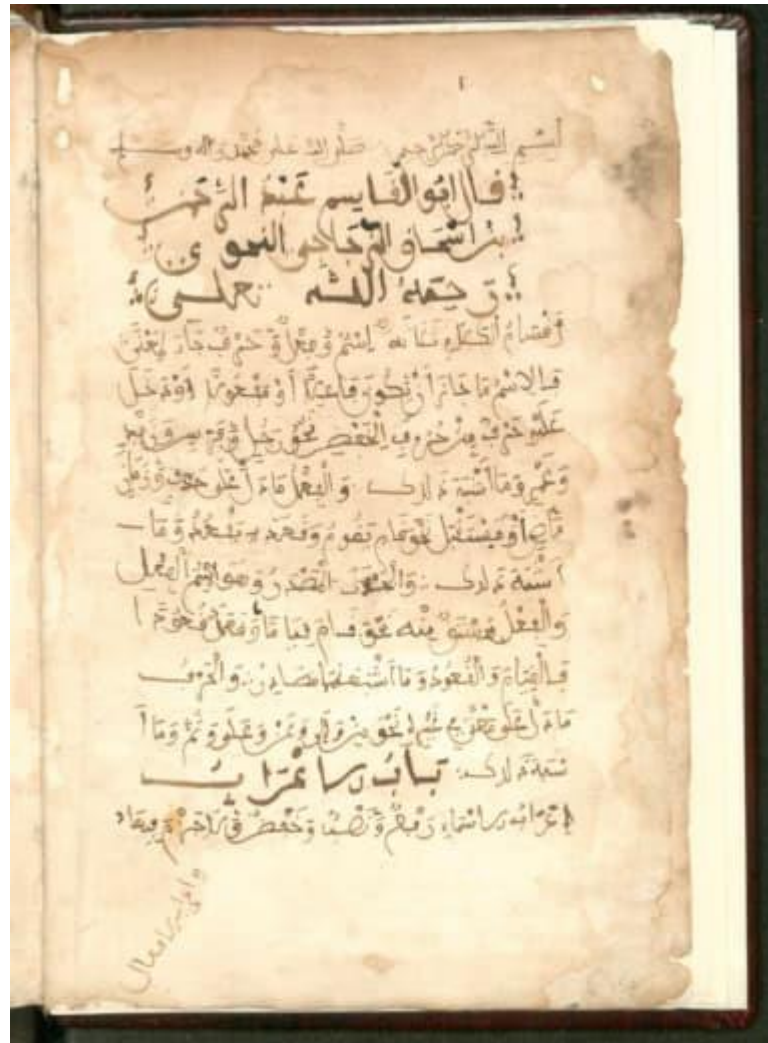 ١
بسم الله الرحمن الرحيم صلى الله على محمد وآله وسلم
قال ابو القاسم عبد الرحمن
بن اسحاق الزجاجي النحوي
رحمه الله تعالى
أقسام الكلام ثلاثة اِسْمٌ وفِعْلٌ وحَرْفٌ جاء لمعنى
فالاسم ما جاز أن يكون فاعلا أو مفعولا أو دخل
عليه حرف من حروف الخفض نحو رجل وفرس وزيد
وعمرو وما أشبه ذلك والفعل ما دل على حدث وزمان
ماض أو مستقبل نحو قام يقوم وقعد يقعد وما
أشبه ذلك والحدث المصدر وهو اسم الفعل
والفعل مشتق منه نحو قام قياما وقعد قعودا
فالقيام والقعود وما أشبههما مصادر والحرف
ما دل على معنى في غيره نحو من وإلى وثم وما أ
شبه ذلك باب الاعراب
إعراب الاسماء رفع ونصب وخفض ولا جزم فيها
واعراب الافعال